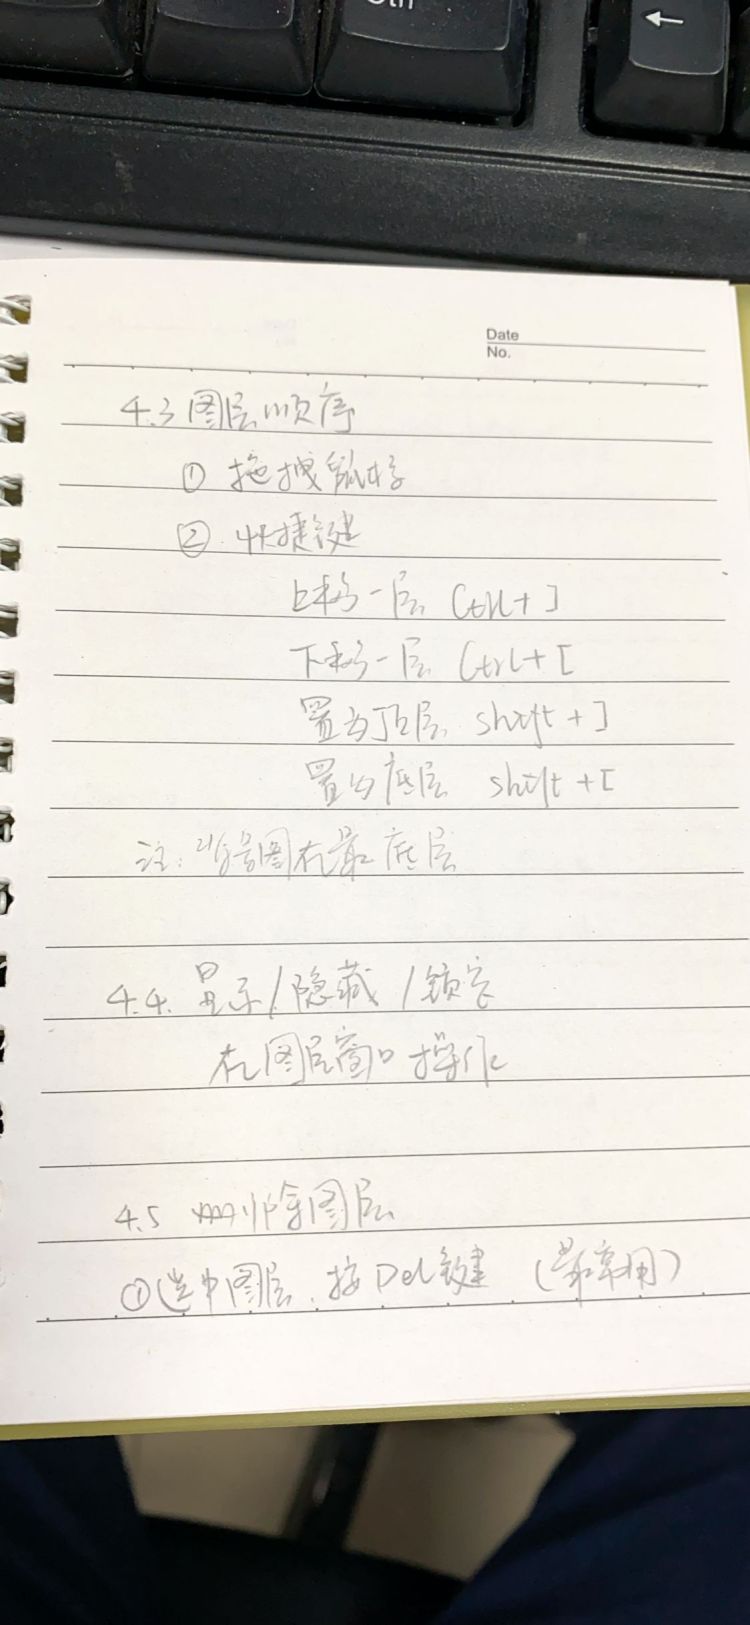 Ctrl
←
Date
No.
4.3 图层顺序
① 拖拽鼠标
②.快捷键
上移一层 Ctrl+]
下移一层 Ctrl+[
置为顶层 shift+]
置为底层 shift+[
注:背景图在最底层
4.4. 显示/隐藏/锁定
在图层窗口操作
4.5 删除图层
①选中图层.按Del键 (最常用)